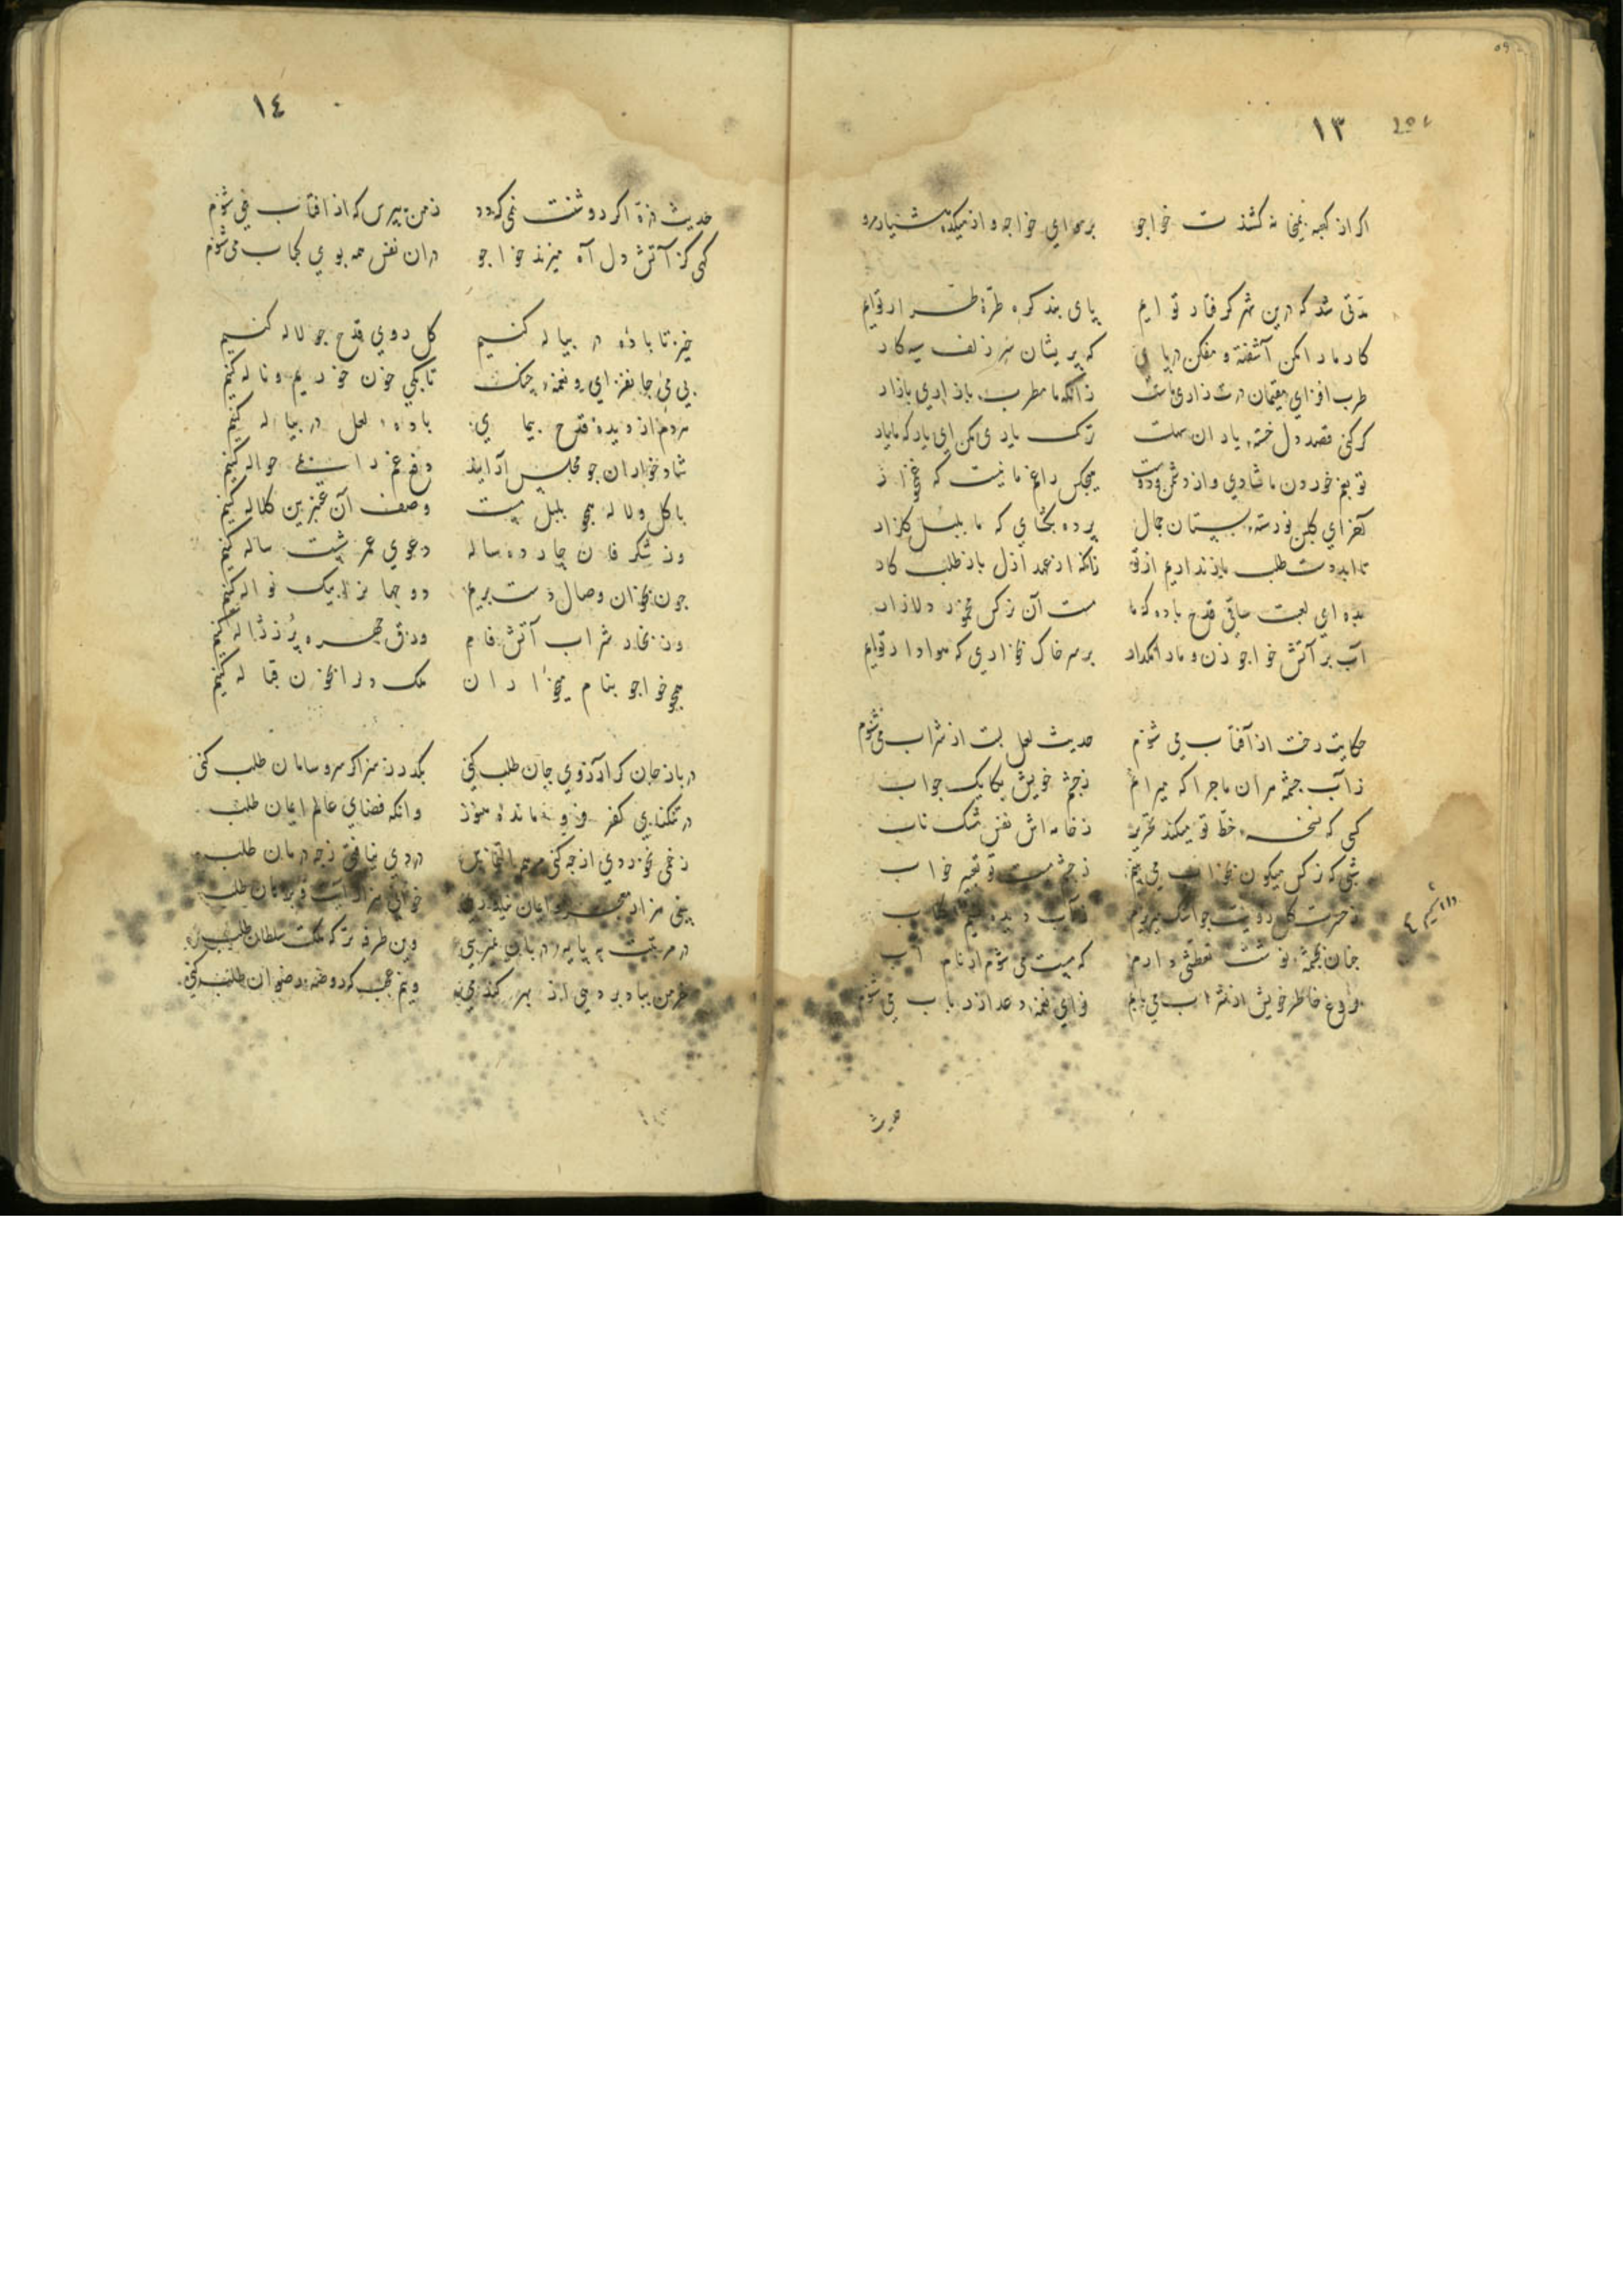 ١٣
اکر از کعبه بمیخانه کشذت خواجو برو ای خواجه و از میکده هشیار مرو
مدتی شد که درین شهر گرفتار توایم پای بند گره طره طرار توایم
کار ما را مکن آشفته و مفکن در پای که پریشان سر زلف سیه کار
طرب افزای مقیمان درت زاری ماست زانکه ما مطرب بازاری بازار
کر کنی قصد دل خسته یاران سهلست ترک یاری مکن ای یار که ما یار
تو بغم خوردن ما شادی و از دشمن و دوست هیچکس را غم ما نیست که غمخوار
آخر ای کلبن نورسته بستان جمال پرده بکشای که ما بلبل کلزار
تا ابد دست طلب باز نداریم از تو زانکه از عهد ازل باز طلب کار
بده ای لعبت ساقی قدح باده که ما مست آن نرکس مخمور دلازار
آب بر آتش خواجو زن و ما را مگذار بر سر خاک بخواری که هوادار توایم
حکایت رخت از آفتاب می شنوم حدیث لعل لبت از شراب می شنوم
ز آب چشمه هر آن ماجرا که میرانم ز چشم خویش یکایک جواب
کسی که نسخه خط تو میکند تحریر ز خامه اش نفس مشک ناب
شبی که نرکس میکون بخواب می بینم ز چشم مست تو تعبیر خواب
ز حسرت کل رویت چو اشک میریزم ز آب دیده نسیم کلاب
چنان بچشمه نوشت تعطشی دارم که مست می شوم ار نام آب
فروغ خاطر خویش از شراب می یابم نوای نغمه رعد از رباب می شنوم
حدیث
١٤
حدیث ذره اکر روشنت نمی کردد ز من بپرس که از افتاب می شنوم
کهی کز آتش دل آه میزند خواجو در ان نفس همه بوی کباب می شنوم
خیز تا باده در پیاله کنیم کل روی قدح چو لاله کنیم
بی می جانفزای و نغمه چنک تا بکی خون خوریم و ناله کنیم
مردم از دیده قدح پیمای باده لعل در پیاله کنیم
شادخواران چو مجلس آرایند دفع غم را بمی حواله کنیم
با کل و لاله همچو بلبل مست وصف آن عنبرین کلاله کنیم
وز شکرفان چارده ساله دعوی عمر شست ساله کنیم
چون بخوان وصال دست بریم دو جهان نزد یک نواله کنیم
وز بخار شراب آتش فام ورق چهره پر ز ژاله کنیم
همچو خواجو بنام میخواران ملک دل را بخون قباله کنیم
در باز جان کر آرزوی جان طلب کنی بگذر ز سر اکر سر و سامان طلب کنی
در تنکنای کفر فرو مانده هنوز وانکه فضای عالم ایمان طلب
زخمی نخورده از چه کنی مرهم التماس دردی نیافتی ز چه درمان طلب
وین طرفه تر که ملکت سلطان طلب
خرمن بباد بر دهی از بهر کندمی وینم عجب که روضه رضوان طلب کنی